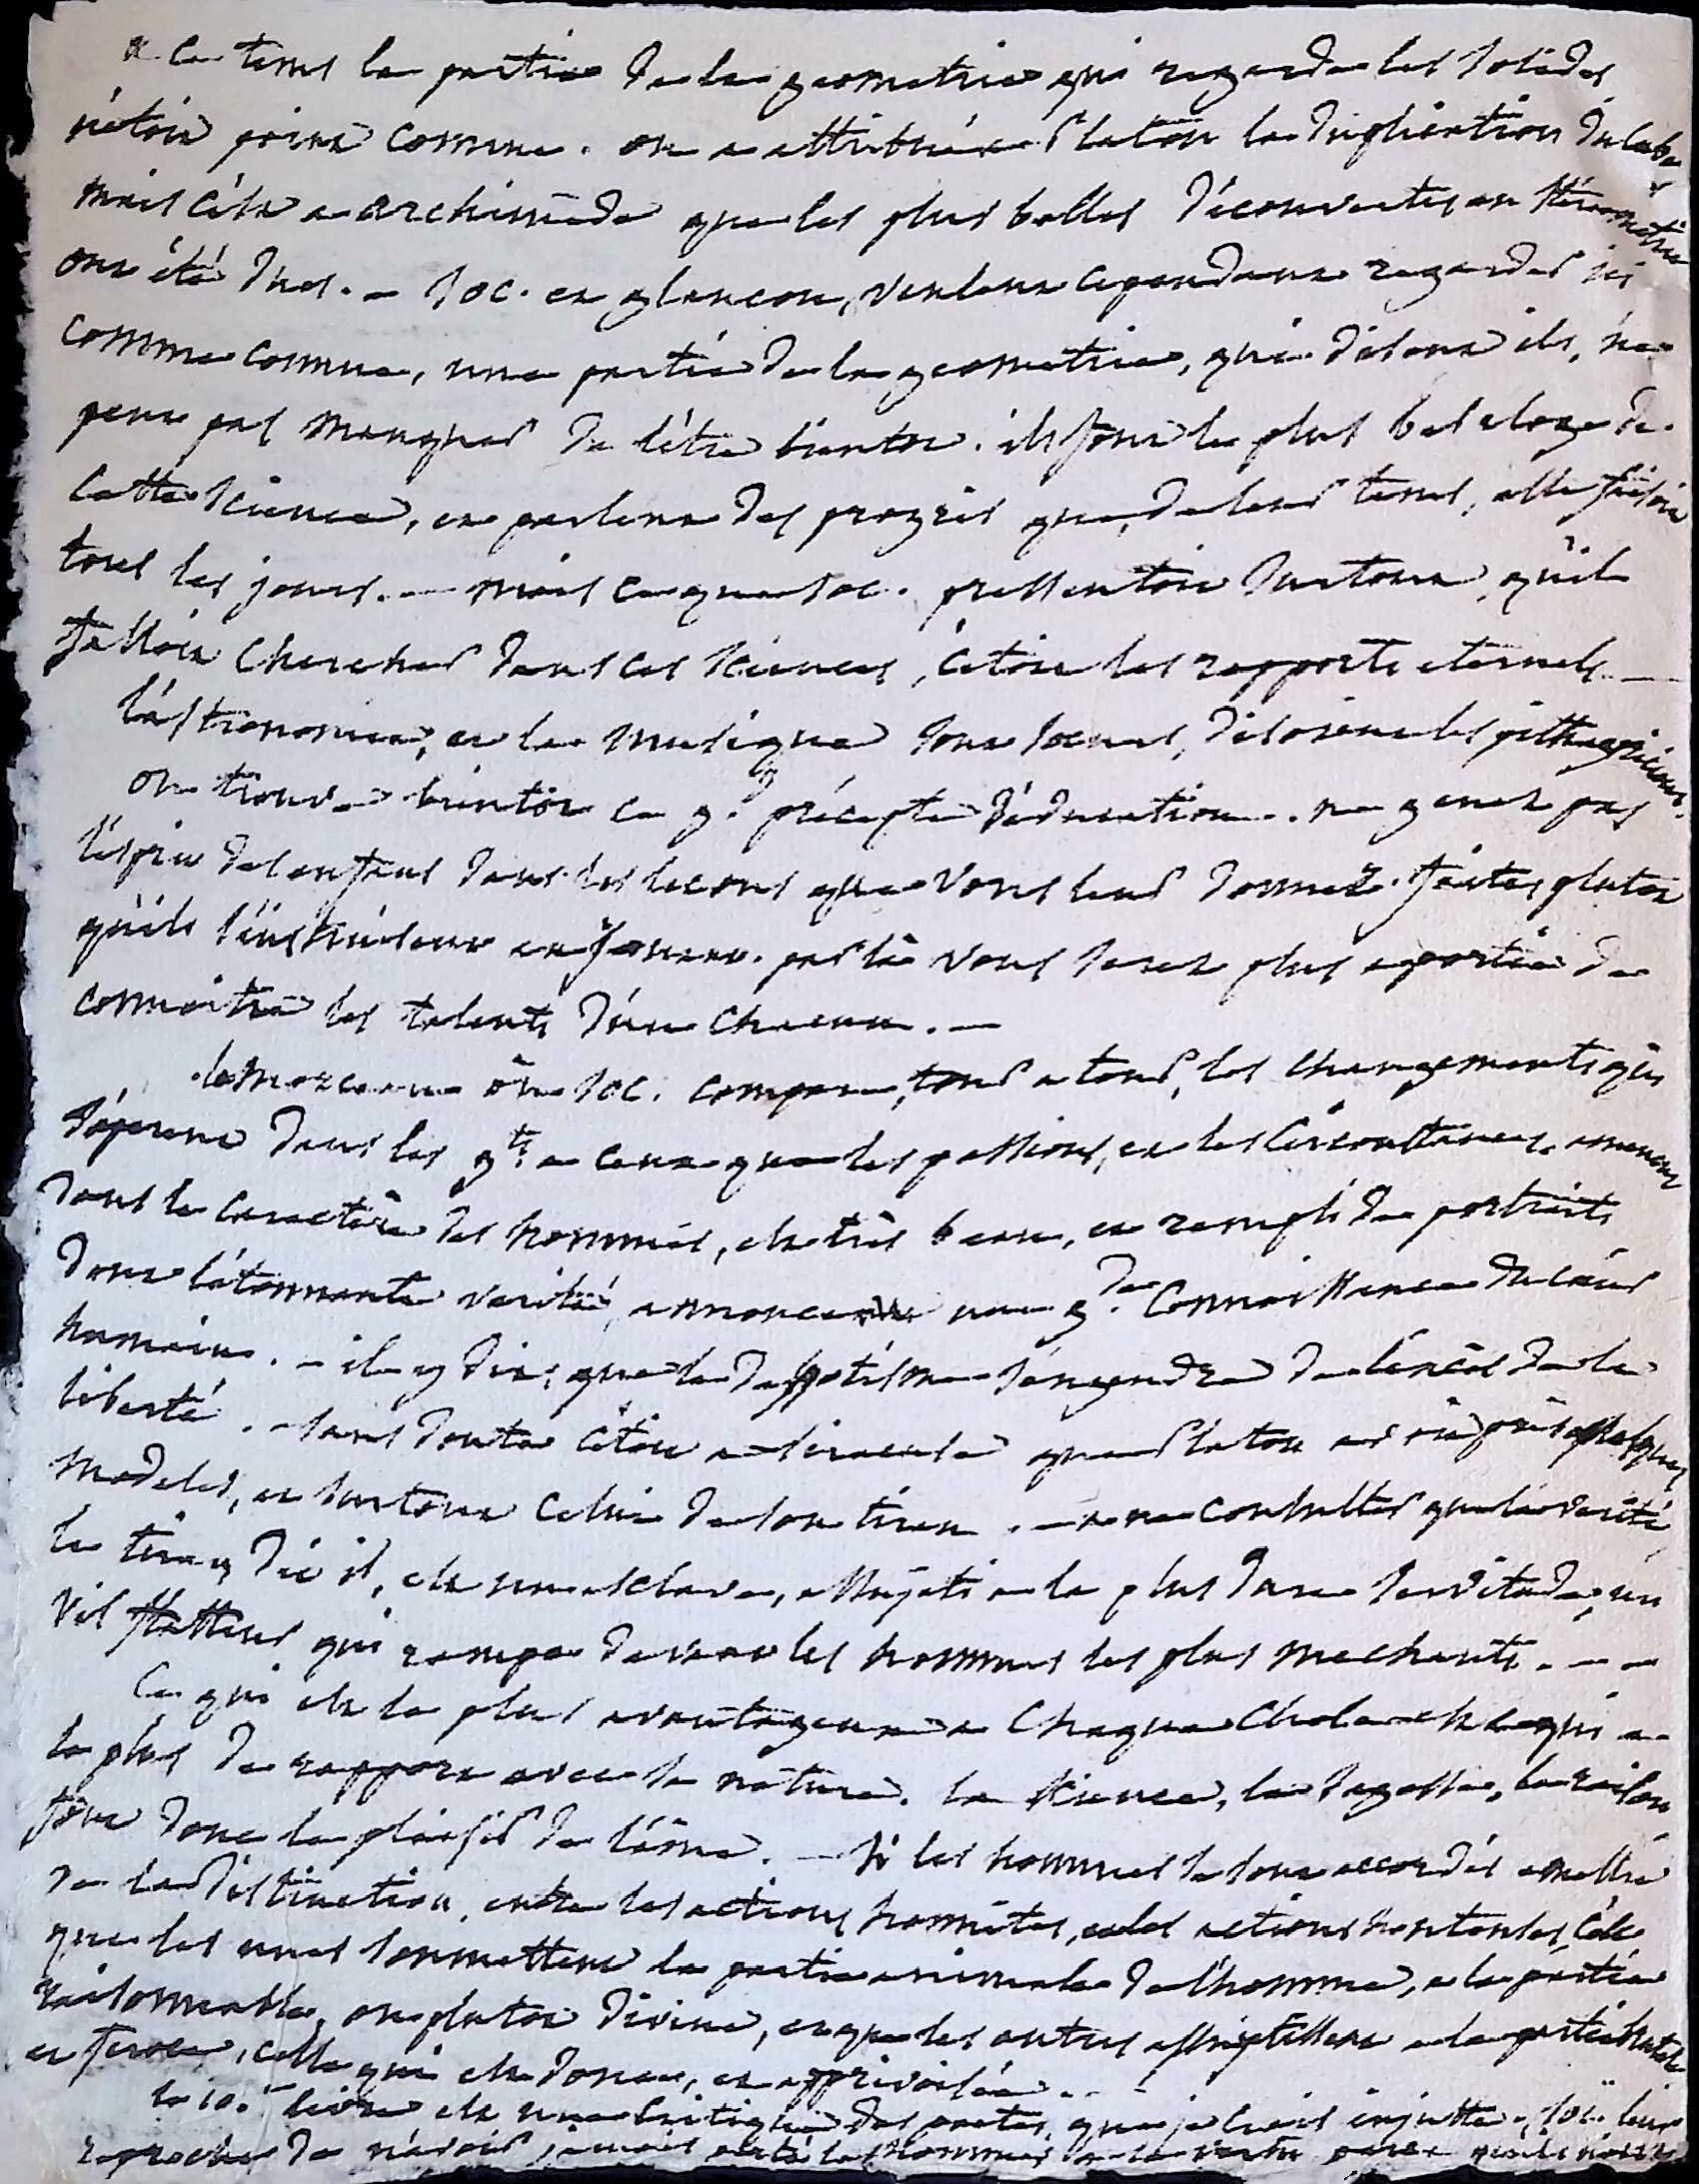 a ce tems la partie de la geometrie qui regarde les solides
n'etoit point connue. on a attribué a Platon la duplication du cube
mais c'est a archimede que les plus belles découvertes en stéréométrie
ont été dues. - Soc. et glaucon, veulent cependant regarder ici
comme connue, une partie de la geometrie, qui disent ils, ne
peut pas manquer de l'être bientot. ils font le plus bel eloge de
cette science, en parlant des progrès que, de leur tems, elle faisoit
tous les jours. - mais ce que Soc. pressentoit surtout, qu'il
falloit chercher dans ces sciences, c'etoit les rapports eternels. -
l'astronomie, et la musique sont soeurs, disoient les pithagoriciens.
on trouve bientot ce g. précepte d'éducation. . ne genez pas
l'esprit des enfans dans les lecons que vous leur donnez. faites plutot
qu'ils s'instruisent en jouant. par là vous serez plus a portée de
connoitre les talents d'un chacun. -
le morceau où Soc. compare, tour a tour, les changements qui
s'operent dans les gts a ceux que les passions, et les circonstances amenent
dans le caractère des hommes, est très beau, et rempli de portraits
dont l'étonnante verité, annonce une gde connoissance du cœur
humain. - il y dit, que le despotisme s'engendre de l'excès de la
liberté. - sans doute c'étoit a siracuse que Platon avoit pris quelques
modeles, et surtout celui de son tiran. - a ne consulter que la verité,
le tiran, dit il, est un esclave, assujeti a la plus dure servitude, un
vil flatteur qui rampe devant les hommes les plus mechants. - -
Ce qui est le plus avantageux a chaque chose est ce qui a
le plus de rapport avec sa nature. la science, la sagesse, la raison,
font donc le plaisir de l'âme. - si les hommes se sont accordés a mettre
de la distinction, entre les actions honnêtes, et les actions honteuses, c'est
que les unes soumettent la partie animale de l'homme, a la partie
raisonnable, ou plutot divine, et que les autres assujetissent a la partie brutale
et feroce, celle qui est douce, et apprivoisée. . -
le 10.me livre est une critique des poetes, que je crois injuste. Soc. leur
reproche de n'avoir jamais excité les hommes a la vertu